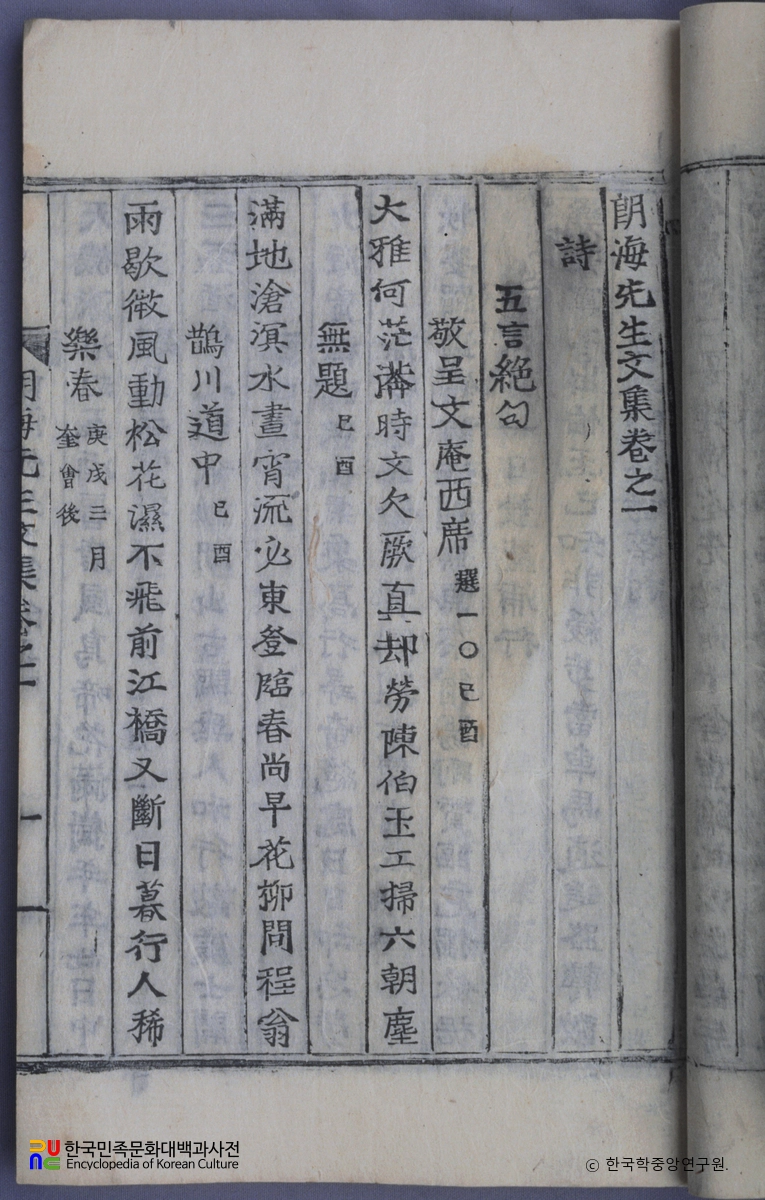 朗海先生文集卷之一
詩
五言絶句
敬呈文庵西席 選一〇 己酉
大雅何茫莽時文欠厥真却勞陳伯玉工掃六朝塵
無題 己酉
滿地滄溟水晝宵流必東登臨春尚早花柳問程翁
鵲川道中 己酉
雨歇微風動松花濕不飛前江橋又斷日暮行人稀
樂春 庚戌三月
奎會後
朗海先生文集卷之一
一
한국민족문화대백과사전
Encyclopedia of Korean Culture
ⓒ 한국학중앙연구원.